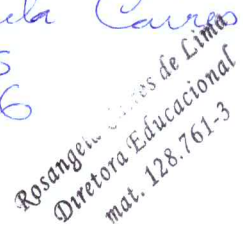 la Carres
S
6
Rosangela de Lima
Diretora Educacional
mat. 128.761-3